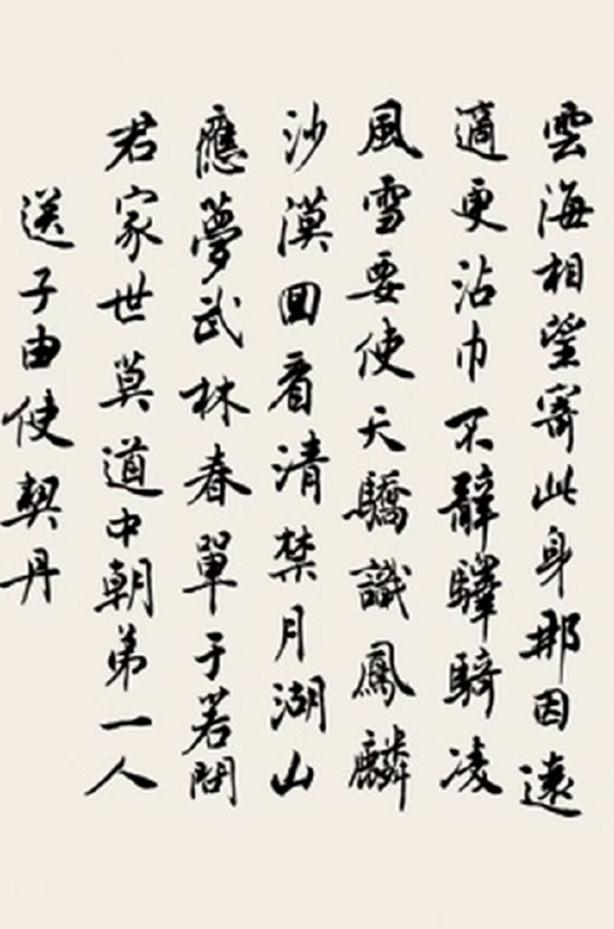 雲海相望寄此身那因遠
適更沾巾不辭驛騎凌
風雪要使天驕識鳳麟
沙漠回看清禁月湖山
應夢武林春單于若問
君家世莫道中朝第一人
送子由使契丹